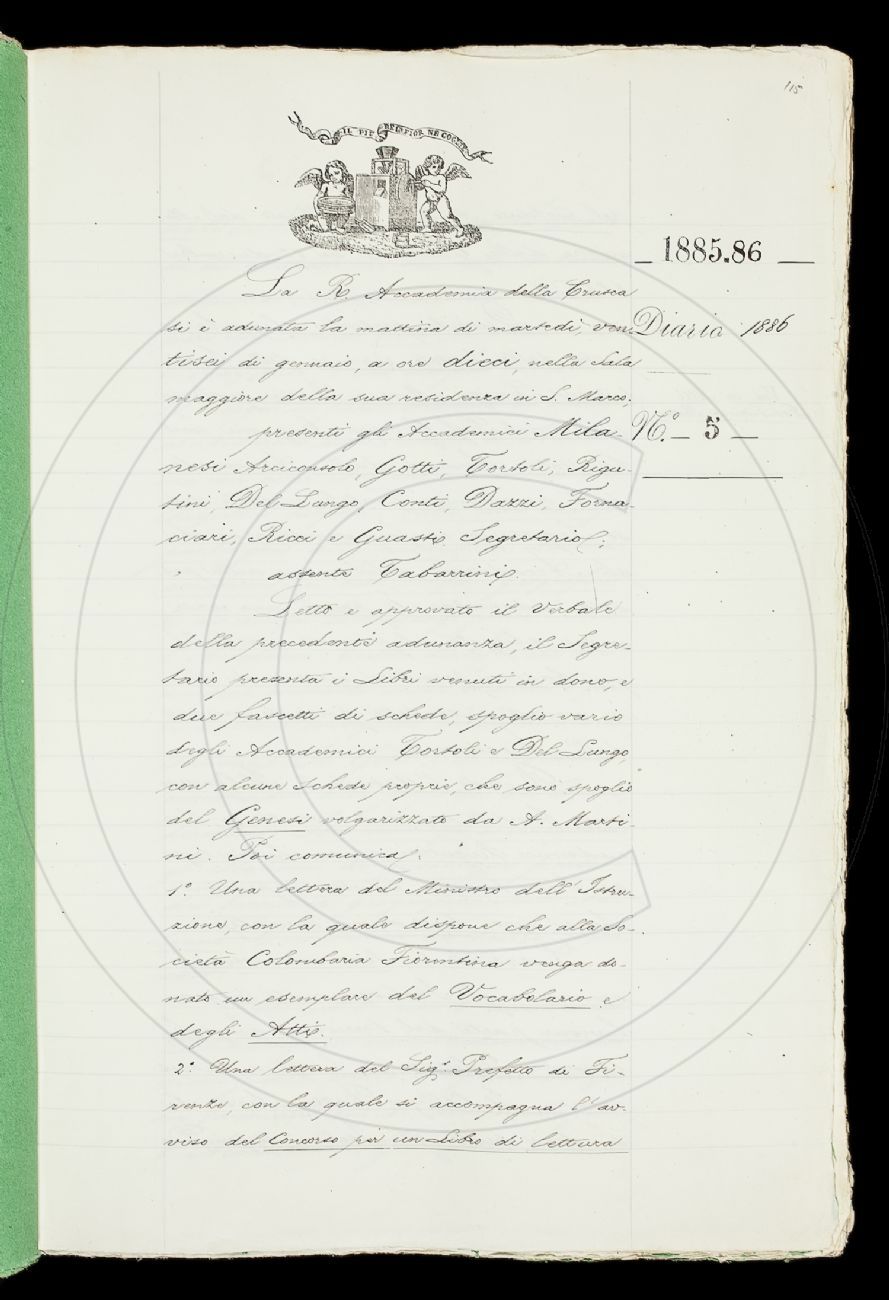 115
IL PIÙ BEL FIOR NE COGLIE
1885.86
La R. Accademia della Crusca
si è adunata la mattina di martedì, ven-
tisei di gennaio, a ore dieci, nella Sala
maggiore della sua residenza in S. Marco;
Diario 1886
N.° 5
presenti gli Accademici Mila-
nesi Arciconsolo, Gotti, Tortoli, Rigu-
tini, Del Lungo, Conti, Dazzi, Forna-
ciari, Ricci e Guasti Segretario;
assente Tabarrini.
Letto e approvato il Verbale
della precedente adunanza, il Segre-
tario presenta i Libri venuti in dono, e
due fascetti di schede, spoglio vario
degli Accademici Tortoli e Del Lungo,
con alcune schede proprie, che sono spoglio
del Genesi volgarizzato da A. Marti-
ni. Poi comunica:
1.° Una lettera del Ministro dell'Istru-
zione, con la quale dispone che alla So-
cietà Colombaria Fiorentina venga do-
nato un esemplare del Vocabolario e
degli Atti.
2.° Una lettera del Sig.r Prefetto di Fi-
renze, con la quale si accompagna l'av-
viso del Concorso per un Libro di lettura